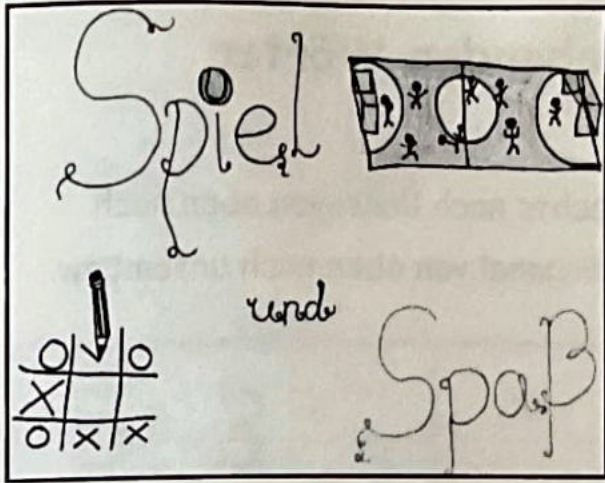 Spiel
und
Spaß
O O
X
O X X